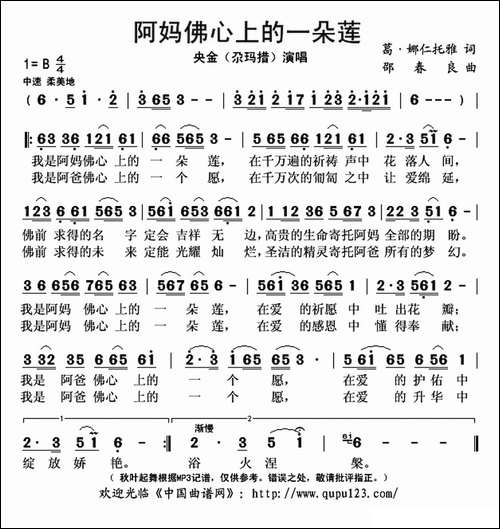 阿妈佛心上的一朵莲
央金（尕玛措）演唱
葛·娜仁托雅 词
邵春良 曲
1=B 4/4
中速 柔美地
(6·5 1·2 | 3 653 - | 235 321 123 2·121 | 6 - - -)
63 36 121 61 | 66 565 - | 5 65 66 121 61 | 2·3 51 | 6 - - -
我是阿妈佛心 上的 一 朵 莲， 在千万遍的祈祷 声中 花 落人 间，
我是阿爸佛心 上的 一 个 愿， 在千万次的匍匐 之中 让 爱绵 延，
123 6 6 101 565 3 | 561 653 661 2 | 1 1 12 36 5 67 3 | 22 3 51 | 6 - - -
佛前 求得的名 字 定会 吉祥 无 边，高贵的生命寄托阿妈 全部的 期 盼。
佛前 求得的未 来 定能 光耀 灿 烂，圣洁的精灵寄托阿爸 所有的 梦 幻。
3 6 656 7 65 | 67 565 3 - | 3 6 656 7 65 | 1 2 323 | 3 - - -
我是 阿妈 佛心 上的 一 朵 莲， 在爱 的祈愿 中 吐 出花 瓣；
我是 阿妈 佛心 上的 一 朵 莲， 在爱 的感恩 中 懂 得奉 献；
3 32 35 665 61 | 2·3 1 65 3 | 3 - - - | 1 6 6 65 56
我是 阿爸 佛心 上的 一 个 愿， 在爱 的 护佑 中
我是 阿爸 佛心 上的 一 个 愿， 在爱 的 升华 中
1 2
渐慢
2·3 51 6 - | 2·3 5 51 | 6 - - -
绽 放 娇 艳。 浴 火 涅 槃。
（ 秋叶起舞根据MP3记谱，仅供参考。错误之处，敬请批评指正。）
欢迎光临《中国曲谱网》：http://www.qupu123.com/